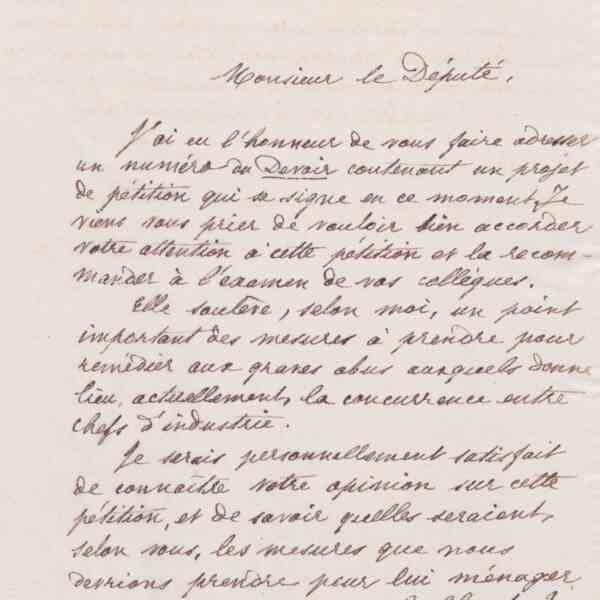 Monsieur le Député,
J'ai eu l'honneur de vous faire adresser
un numéro du Devoir contenant un projet
de pétition qui se signe en ce moment, Je
viens vous prier de vouloir bien accorder
votre attention à cette pétition et la recom-
mander à l'examen de vos collègues.
Elle soulève, selon moi, un point
important des mesures à prendre pour
remédier aux graves abus auxquels donne
lieu, actuellement, la concurrence entre
chefs d'industrie.
Je serais personnellement satisfait
de connaître votre opinion sur cette
pétition, et de savoir quelles seraient,
selon vous, les mesures que nous
devrions prendre pour lui ménager